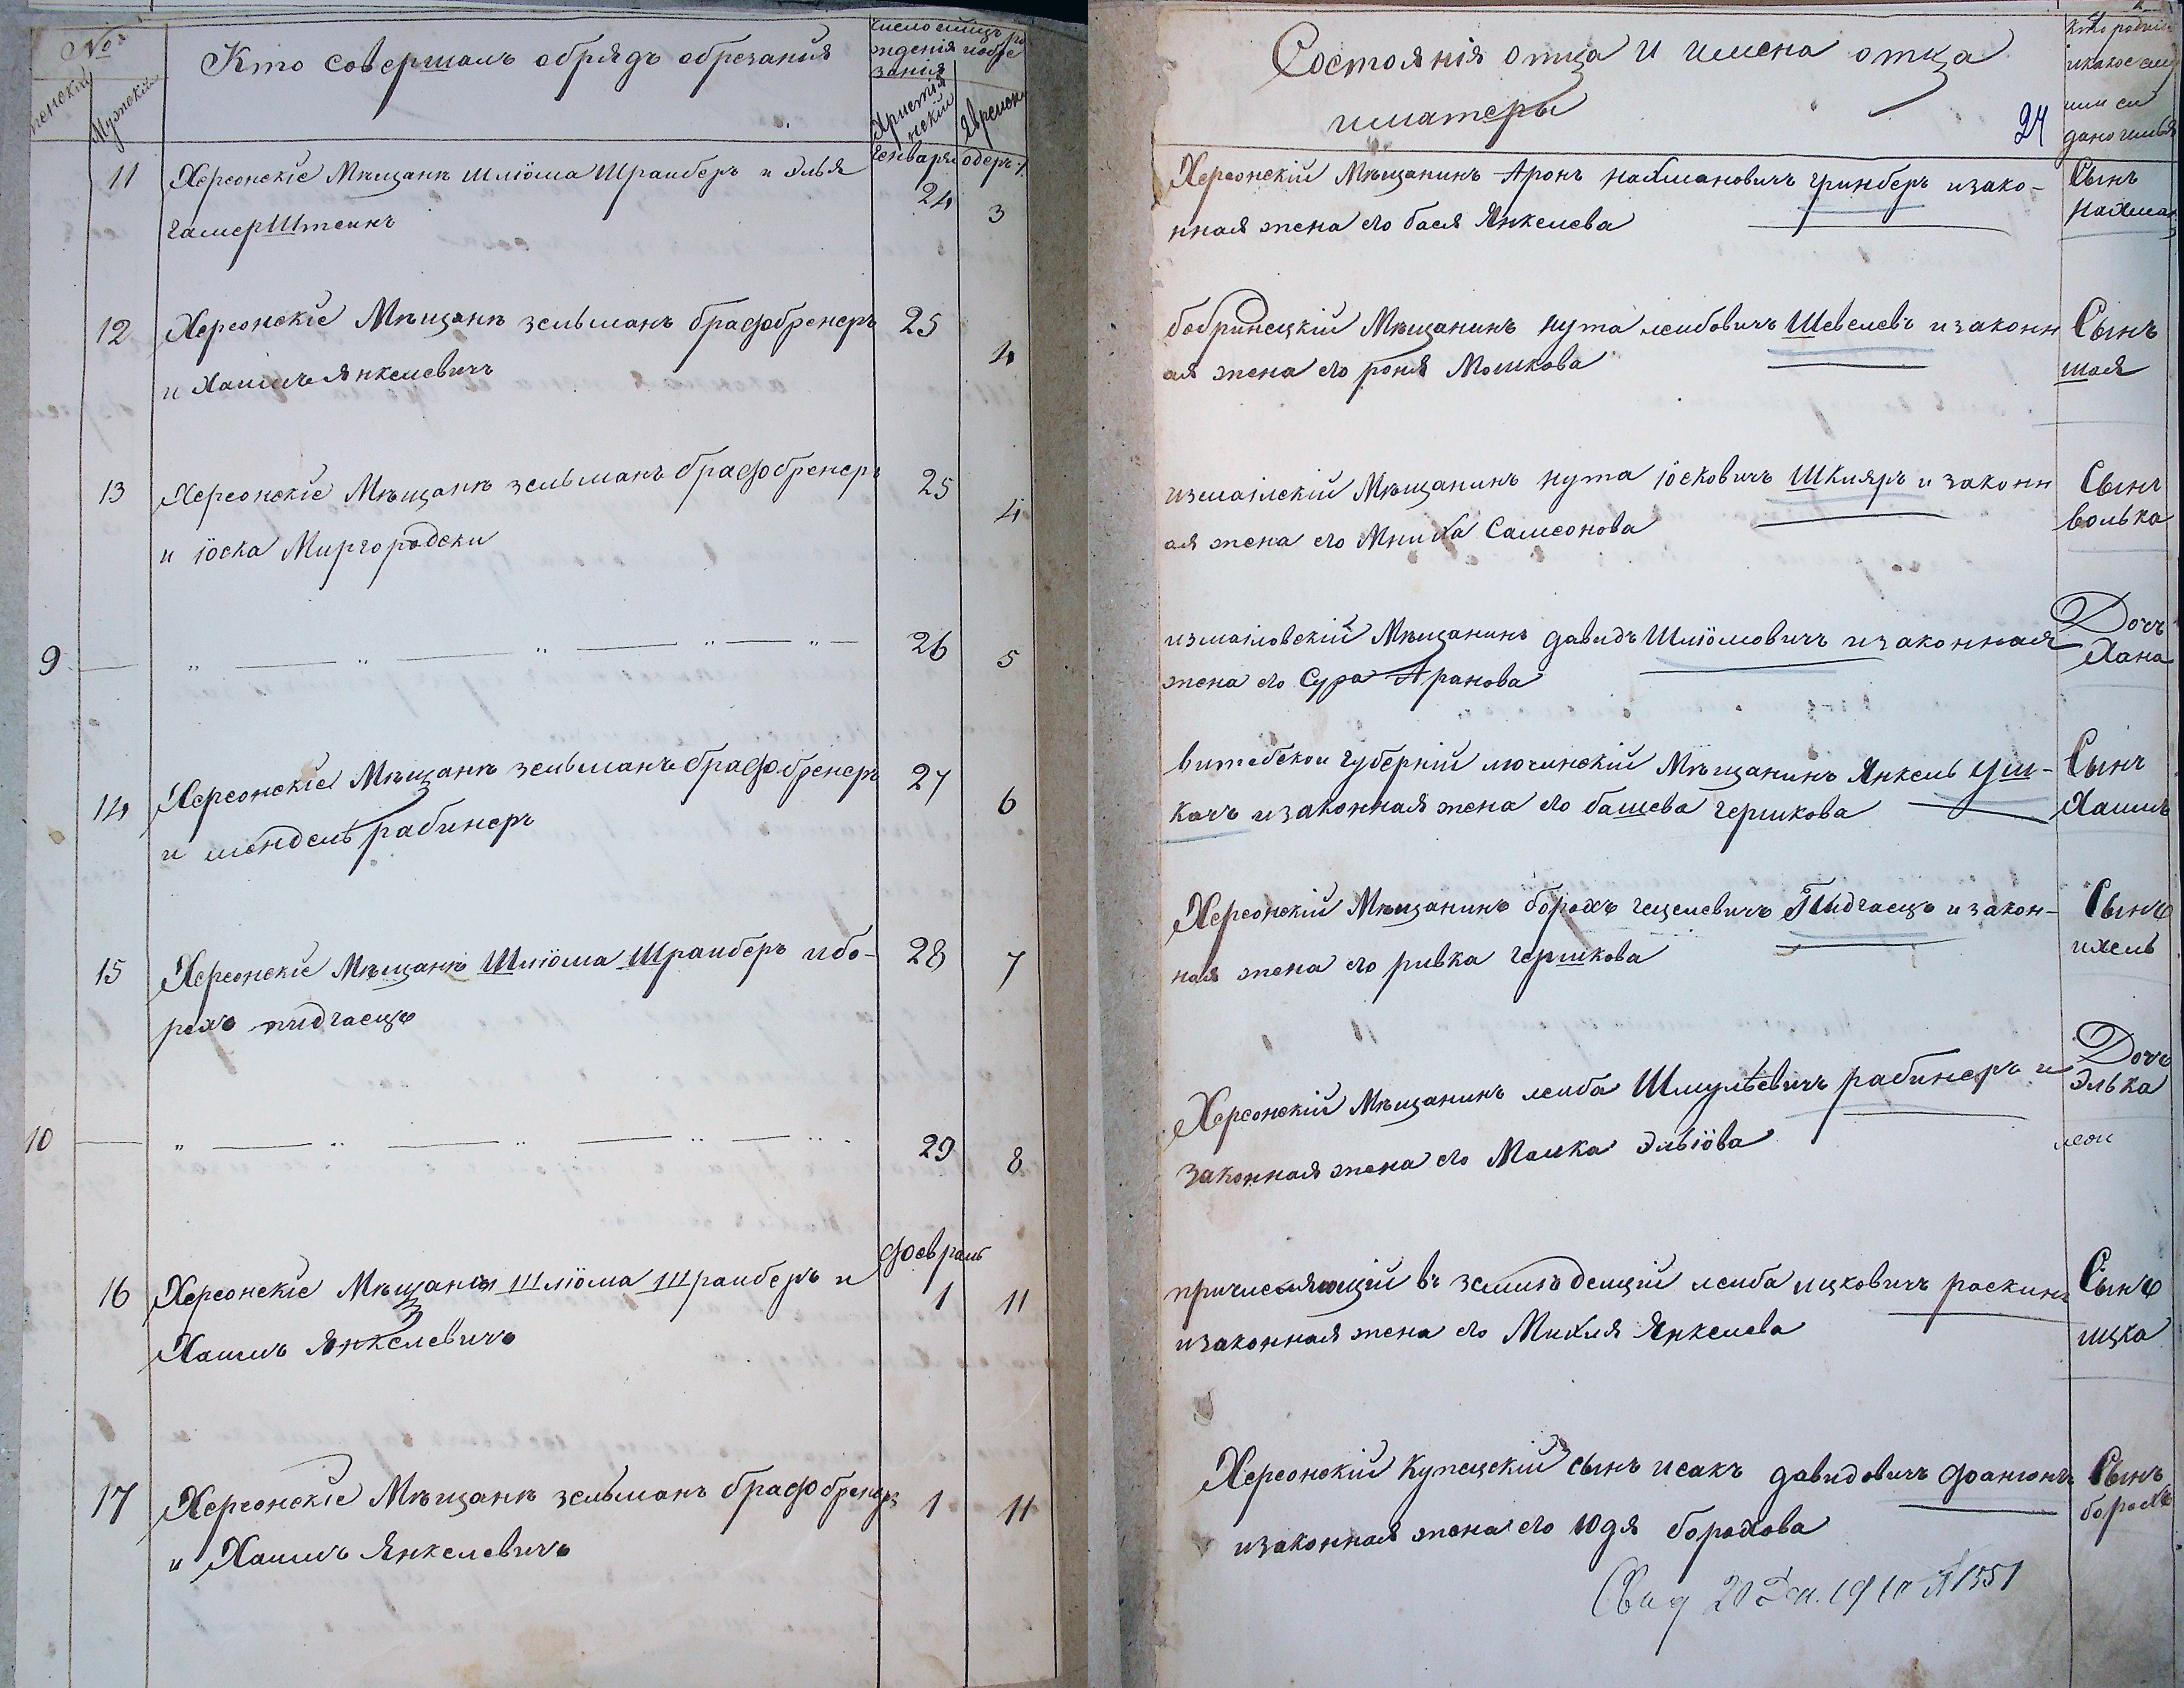 №
женскій
Мужскій
Кто совершалъ обрядъ обрезанія
Христіа
нскій
Еврейск
генваря
11
Херсонскіе Мѣщанѣ Шліома Шрайберъ и Элья
гамерШтеинъ
24
3
12
Херсонскіе Мѣщанѣ зельманъ брафбренеръ
и Хаимъ Янкелевичъ
25
4
13
Херсонскіе Мѣщанѣ зельманъ брафбренеръ
и іоска Миргородски
25
4
9
26
5
14
Херсонскіе Мѣщанѣ зельманъ брафбренеръ
и мендель рабинеръ
27
6
15
Херсонскіе Мѣщанѣ Шліома Шрайберъ и бо-
рохъ пидгаецъ
28
7
10
29
8
февраль
16
Херсонскіе Мѣщаны Шліома Шрайберъ и
Хаимъ Янкелевичъ
1
11
17
Херсонскіе Мѣщанѣ зельманъ брафбренеръ
и Хаимъ Янкелевичъ
1
11
Состоянія отца и имена отца
и матеры
24
кто родил
дано имья
Херсонскій Мѣщанинъ Аронъ нахмановичъ гринберъ и зако-
нная жена его бася Янкелева
Сынъ
нахман
бобринецкій Мѣщанинъ нута леибовичъ Шевелевъ и законн
ая жена его роня Мошкова
Сынъ
шая
измаилскій Мѣщанинъ нута іосковичъ Шкляръ и законн
ая жена его Мниха Самсонова
Сынъ
волька
измаиловскій Мѣщанинъ давидъ Шліомовичъ и законная
жена его Сура Аранова
Дочь
Хана
витебскои губерніи люцинскій Мѣщанинъ Янкель Уш-
качъ и законная жена его башева гершкова
Сынъ
Хаимъ
Херсонскій Мѣщанинъ борохъ гецелевичъ Пидгаецъ и закон-
ная жена его ривка гершкова
Сынъ
ихель
Херсонскій Мѣщанинъ леиба Шмулѣевичъ рабинеръ и
законная жена его Малка Эльіова
Дочъ
Элька
леиба ицковичъ раскинъ
и законная жена его Михля Янкелева
Сынъ
ицка
Херсонскій купецскій сынъ исакъ давидовичъ фаннюнъ
и законная жена его Юдя борохова
Сынъ
борохъ
Свид 20 Дек. 1910 № 1551